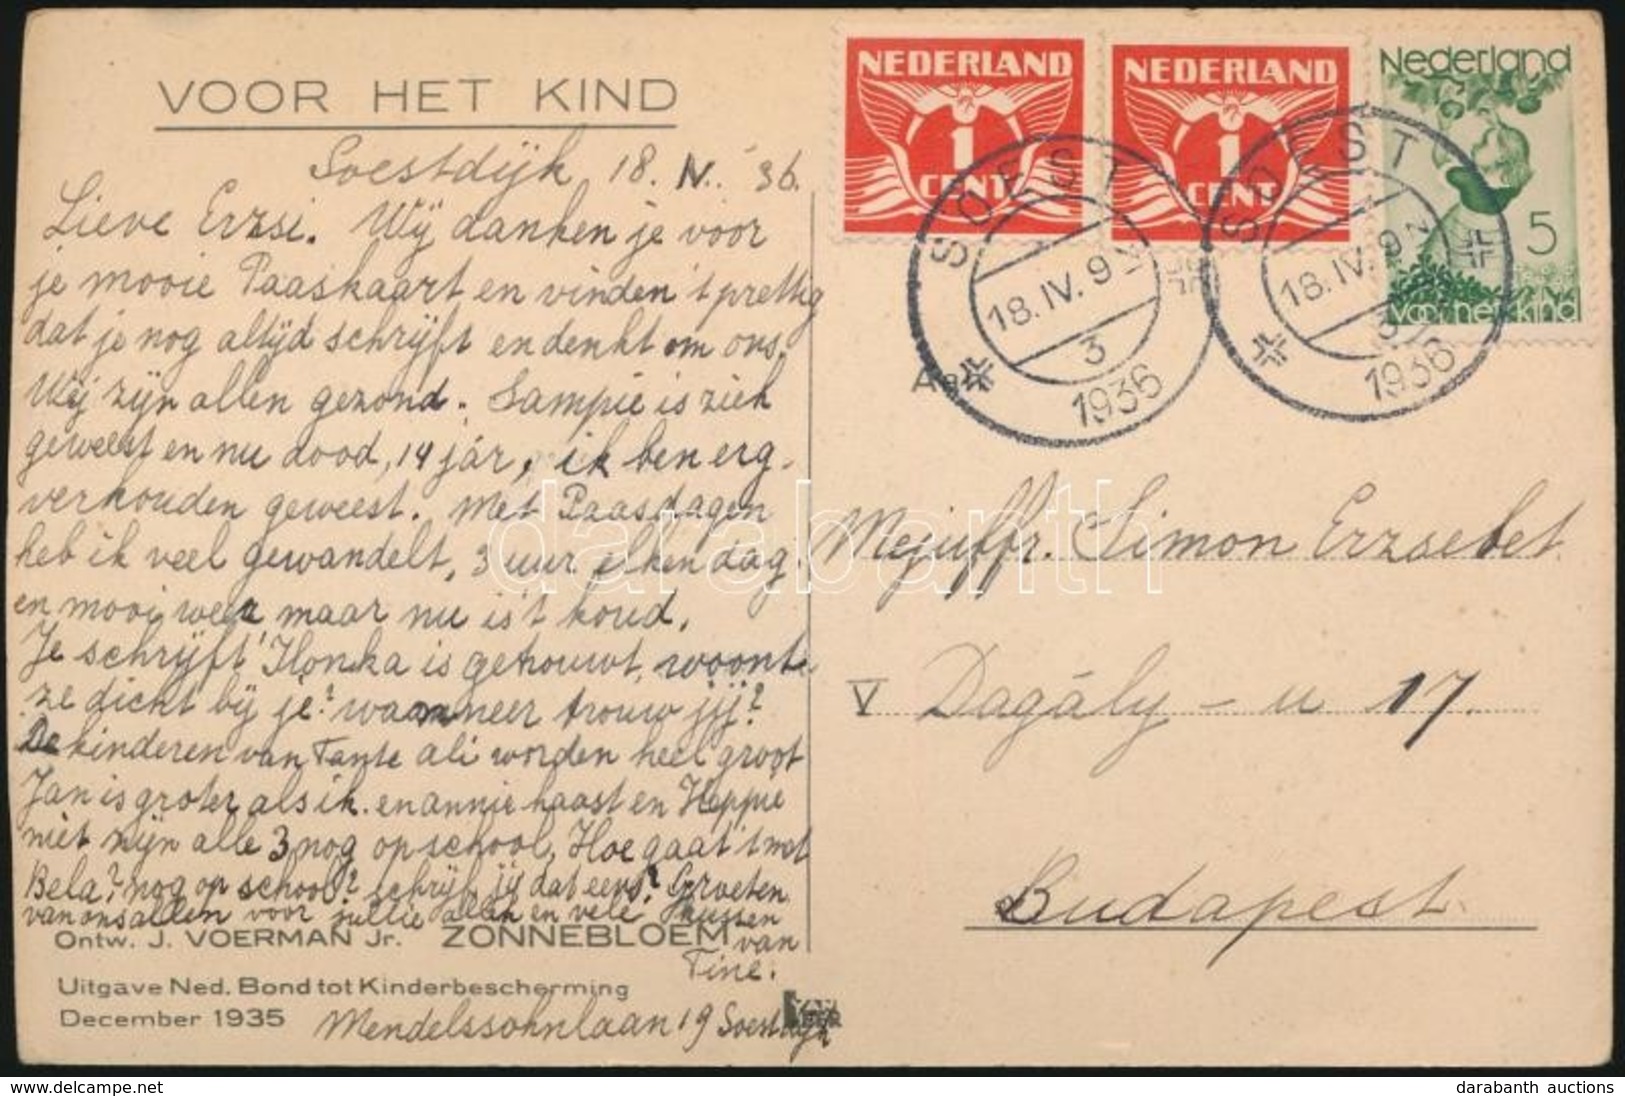 VOOR HET KIND
Soestdijk 18. IV. '36.
Lieve Erzsi. Wij danken je voor
je mooie Paaskaart en vinden 't prettig
dat je nog altijd schrijft en denkt om ons.
Wij zijn allen gezond. Sampie is ziek
geweest en nu dood, 14 jár, ik ben erg
verkouden geweest. Met Paasdagen
heb ik veel gewandelt, 3 uur elken dag
en mooi weer maar nu is 't koud.
Je schrijft Ilonka is getrouwt, woont
ze dicht bij je? wanneer trouw jij?
De kinderen van Tante Ali worden heel groot
Jan is groter als ik en annie haast en Heppie
niet zijn alle 3 nog op school. Hoe gaat 't met
Bela? nog op school? schrijf jij dat eens? Groeten
van ons allen voor jullie allen en vele kussen
van
Tine.
Ontw. J. VOERMAN Jr. ZONNEBLOEM
Uitgave Ned. Bond tot Kinderbescherming
December 1935
Mendelssohnlaan 19 Soestdijk
NEDERLAND
1
CENT
NEDERLAND
1
CENT
Nederland
5
voor het kind
SOEST
18.IV.9
3
1936
SOEST
18.IV.9
3
1936
Mejuffr. Simon Erzsebet
V Dagály - u 17.
Budapest
darabanth
darabanth auctions